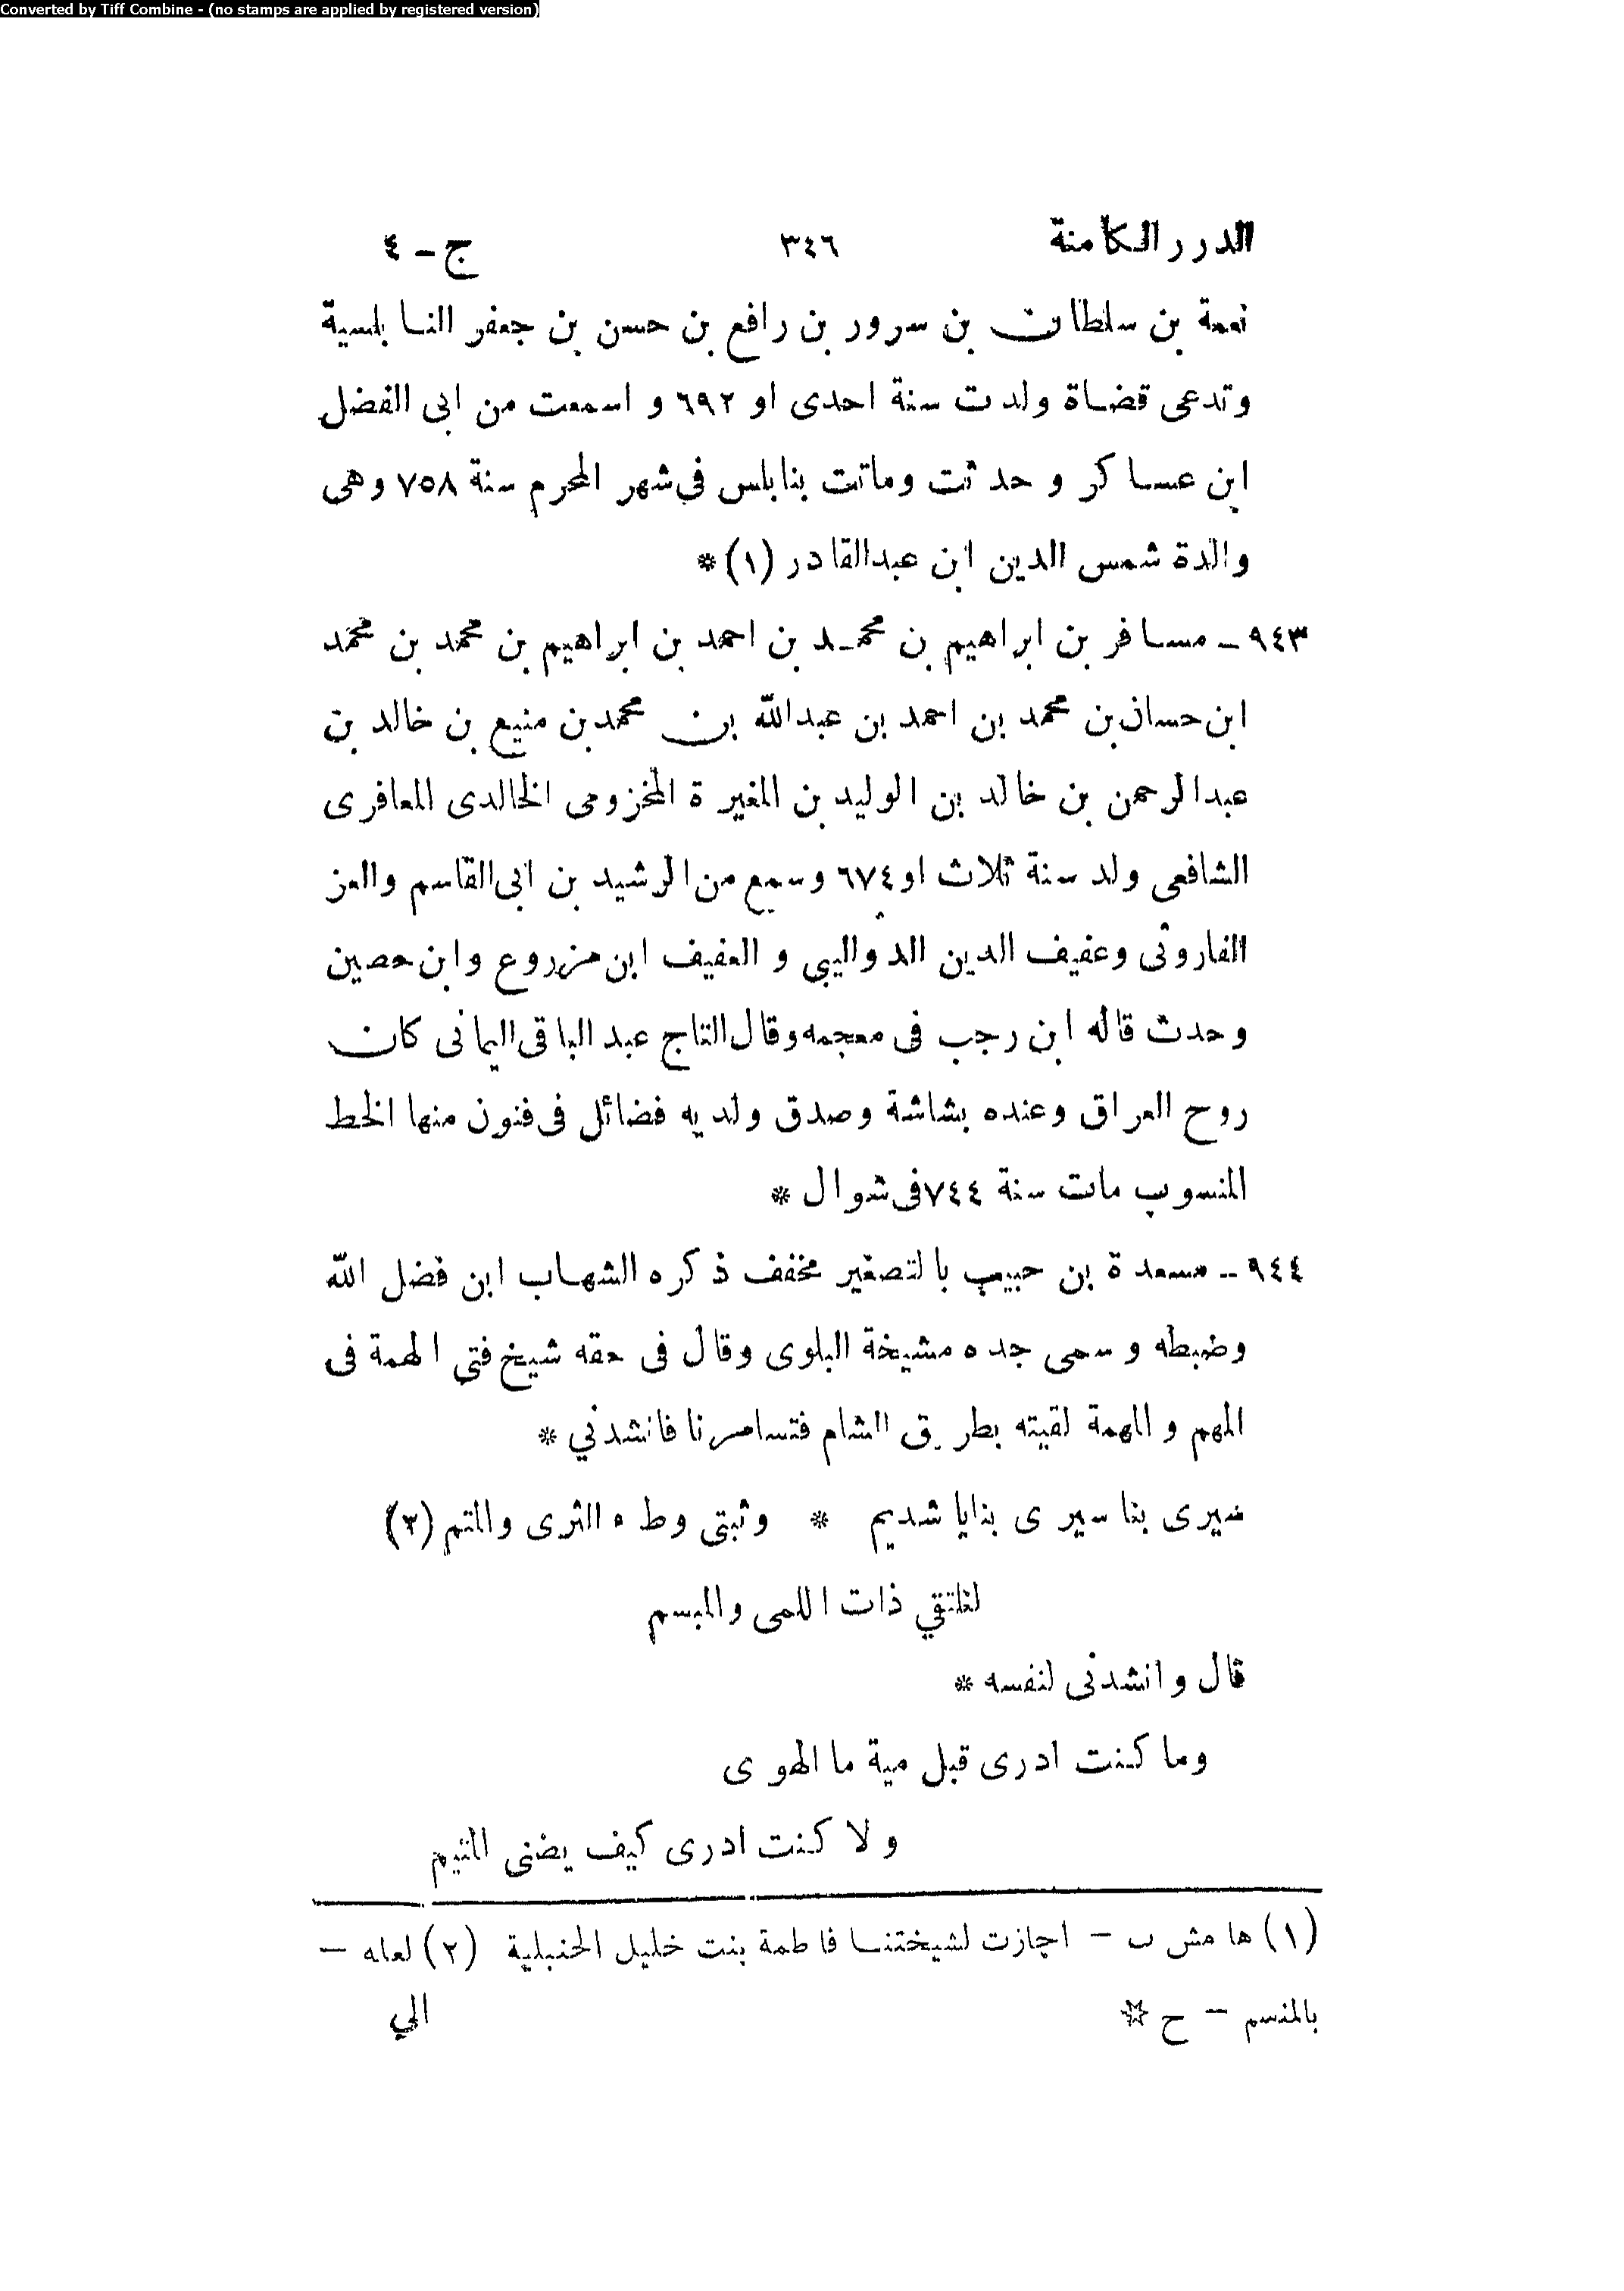 Converted by Tiff Combine - (no stamps are applied by registered version)
الدرر الكامنة ٣٤٦ ج – ٤
نعمة بن سلطان بن سرور بن رافع بن حسن بن جعفر النابلسية
وتدعى قضاة ولدت سنة احدى او ٦٩٢ و اسمعت من ابى الفضل
ابن عساكر و حدثت وماتت بنابلس فى شهر المحرم سنة ٧٥٨ وهى
والدة شمس الدين ابن عبدالقادر (١) *
٩٤٣ – مسافر بن ابراهيم بن محمد بن احمد بن ابراهيم بن محمد بن محمد
ابن حسان بن محمد بن احمد بن عبدالله بن محمد بن منيع بن خالد بن
عبدالرحمن بن خالد بن الوليد بن المغيرة المخزومى الخالدى المعافرى
الشافعى ولد سنة ثلاث او ٦٧٤ وسمع من الرشيد بن ابى القاسم والعز
الفاروثى وعفيف الدين الدواليبى و العفيف ابن مزروع وابن حصين
وحدث قاله ابن رجب فى معجمه وقال التاج عبد الباقى اليمانى كان
روح العراق وعنده بشاشة وصدق ولديه فضائل فى فنون منها الخط
المنسوب مات سنة ٧٤٤ فى شوال *
٩٤٤ – مسعدة بن حبيب بالتصغير مخفف ذكره الشهاب ابن فضل الله
وضبطه و سمى جده مشيخة البلوى وقال فى حقه شيخ فتى الهمة فى
المهم والمهمة لقيته بطريق الشام فتسامرنا فانشدني *
سيرى بنا سيرى بذايا شديم * وثبتى وطء الثرى والمتم (٢)
لنلتقي ذات اللمى والمبسم
قال وانشدنى لنفسه *
وما كنت ادرى قبل مية ما الهوى
ولا كنت ادرى كيف يضنى المتيم
(١) هامش ب – اجازت لشيختنا فاطمة بنت خليل الحنبلية (٢) لعله –
بالمنسم – ح * الي